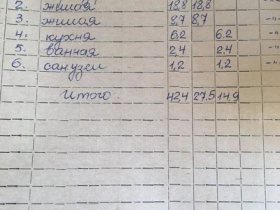 2. жилая 18,8 18,8
3. жилая 8,7 8,7
4. кухня 6.2 6.2
5. ванная 2,4 2,4
6. санузел 1,2 1,2
Итого 42,4 27.5 14,9